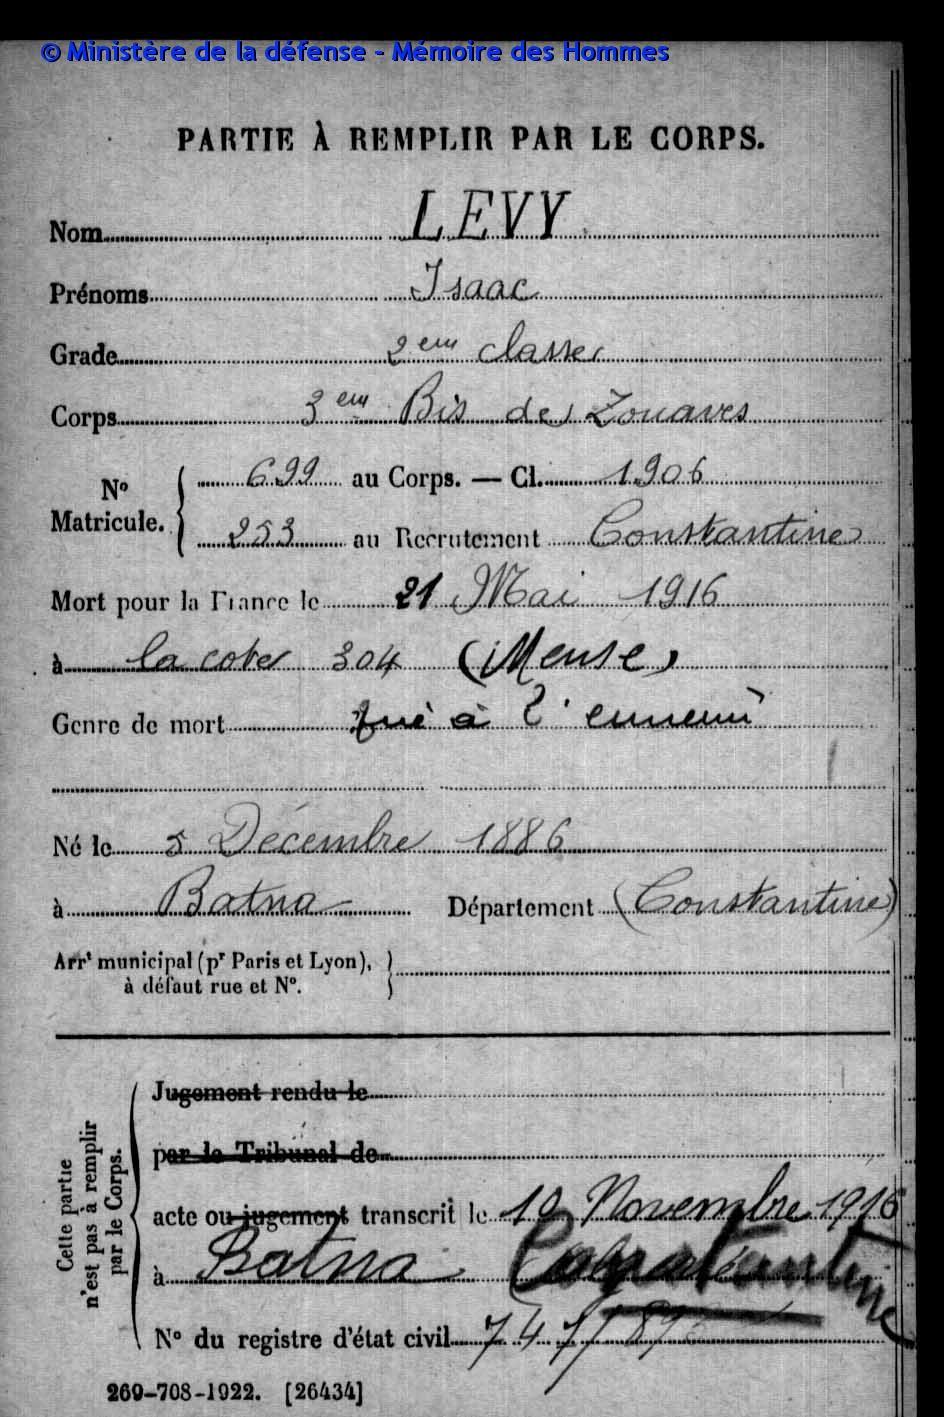 © Ministère de la défense - Mémoire des Hommes
PARTIE À REMPLIR PAR LE CORPS.
Nom LEVY
Prénoms Isaac
Grade 2eme classe
Corps 3eme Bis de Zouaves
N° Matricule. 699 au Corps. — Cl. 1906
253 au Recrutement Constantine
Mort pour la France le 21 Mai 1916
à la cote 304 (Meuse)
Genre de mort tué à l'ennemi
Né le 5 Décembre 1886
à Batna Département (Constantine)
Arrt municipal (pr Paris et Lyon),
à défaut rue et N°.
Cette partie n'est pas à remplir par le Corps.
Jugement rendu le
par le Tribunal de
acte ou jugement transcrit le 10 Novembre 1916
à Batna Constantine
N° du registre d'état civil
269-708-1922. [26434]